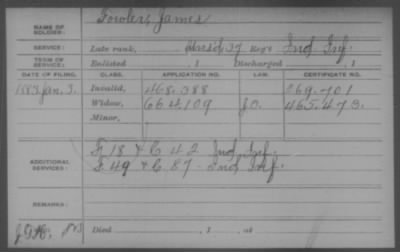 NAME OF SOLDIER: Fowler, James
SERVICE: Late rank, 37 Reg't Ind Inf.
TERM OF SERVICE: Enlisted , 1 Discharged , 1
DATE OF FILING. CLASS. APPLICATION NO. LAW. CERTIFICATE NO.
1883, Jan. 3. Invalid, 468.388 269.701
Widow, 664109 465.473.
Minor,
ADDITIONAL SERVICES: F. 18 & C. 42 Ind. Inf.
F. 49 & C. 87 - Ind Inf.
REMARKS:
Died , 1 , at